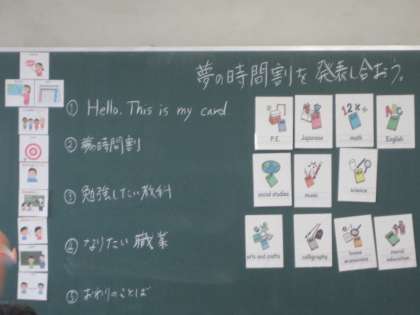 夢の時間割を発表し合おう。
① Hello. This is my card
② 夢の時間割
③ 勉強したい教科
④ なりたい職業
⑤ おわりのことば
P.E.
Japanese
math
English
social studies
music
science
arts and crafts
calligraphy
home economics
moral education